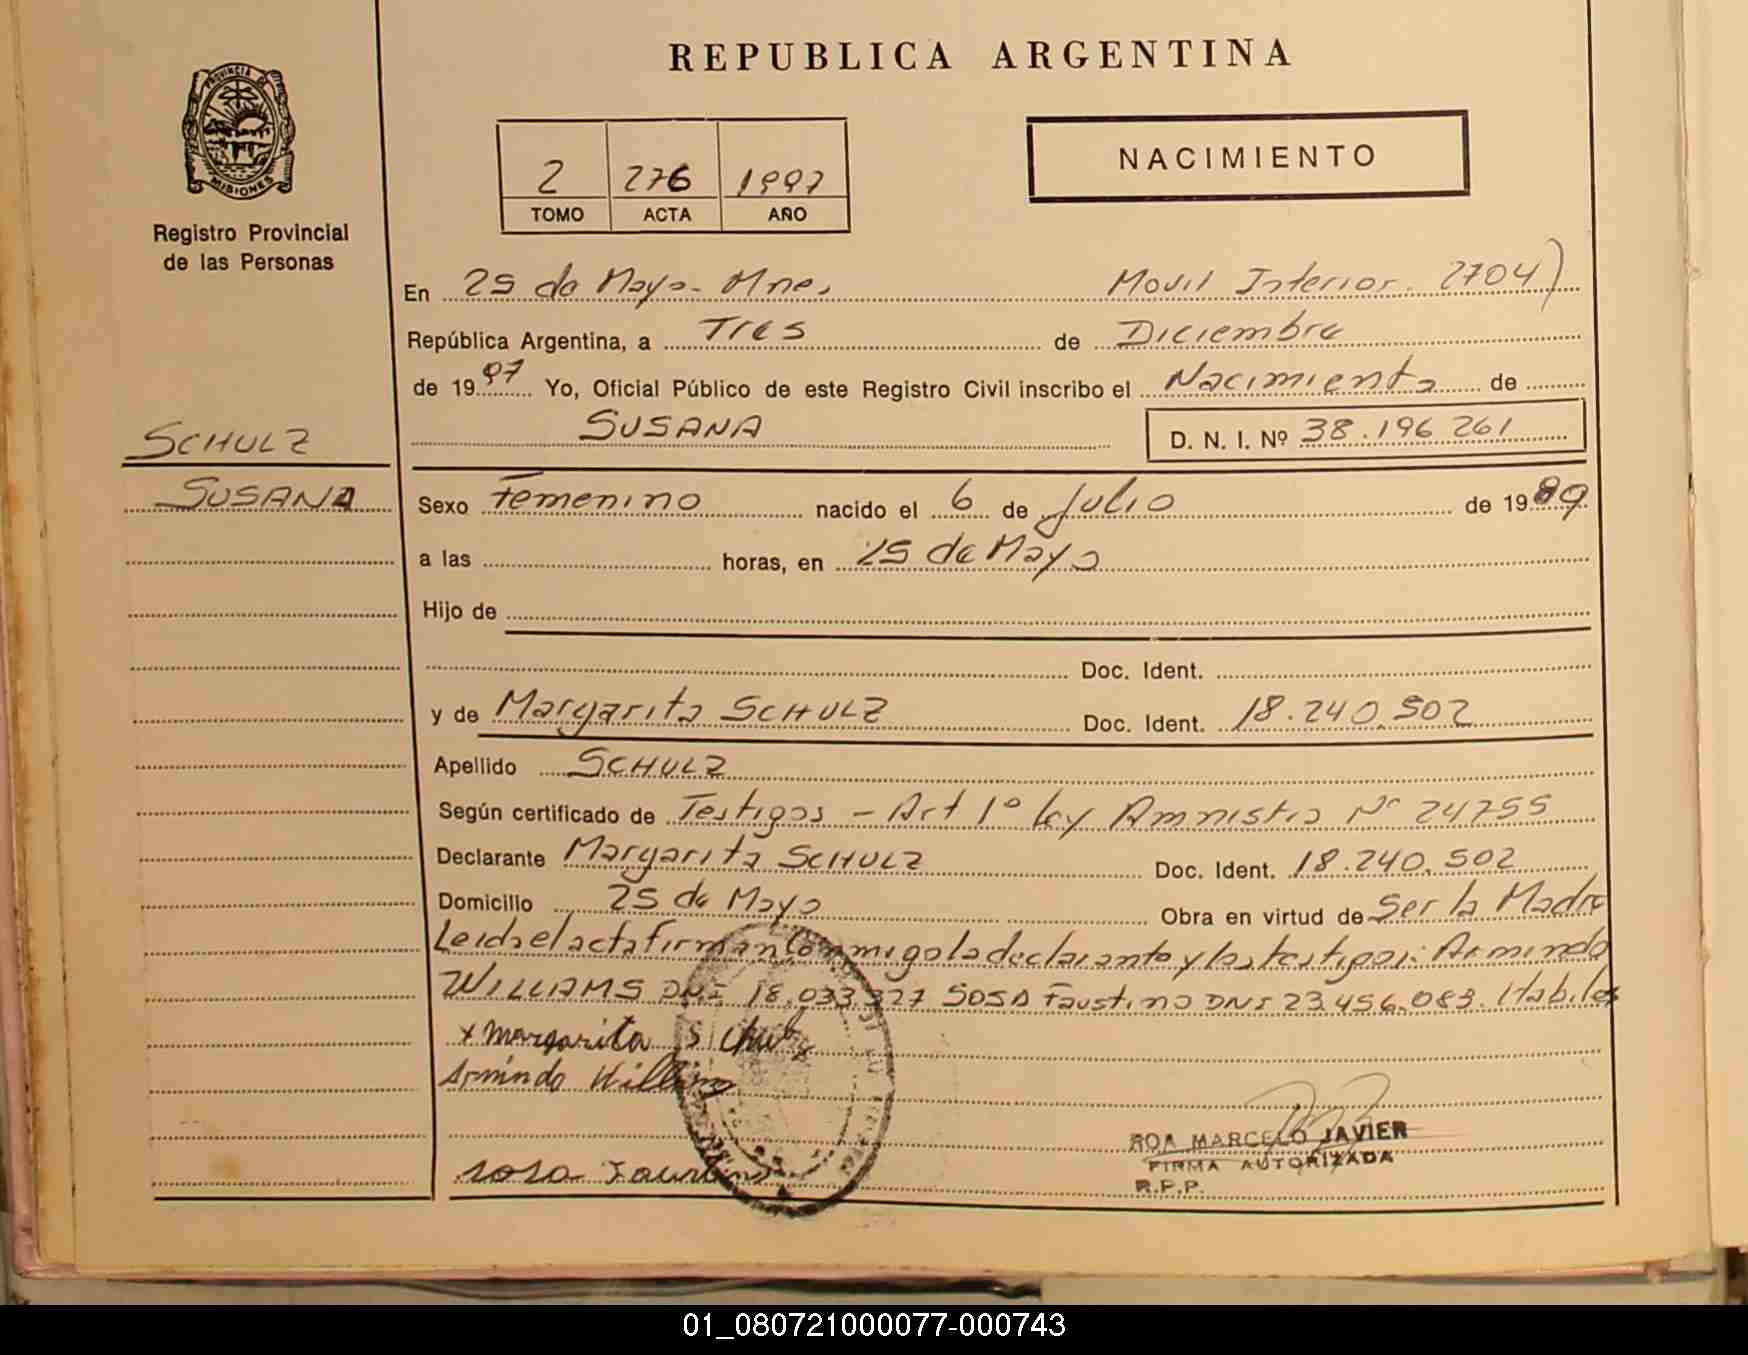 REPUBLICA ARGENTINA
PROVINCIA DE
MISIONES
Registro Provincial
de las Personas
2 276 1997
TOMO ACTA AÑO
NACIMIENTO
En 25 de Mayo - Mnes, Movil Interior 2704)
República Argentina, a Tres de Diciembre
de 1997 Yo, Oficial Público de este Registro Civil inscribo el Nacimiento de
SUSANA D. N. I. Nº 38.196 261
SCHULZ
SUSANA
Sexo Femenino nacido el 6 de Julio de 1989
a las horas, en 25 de Mayo
Hijo de
Doc. Ident.
y de Margarita SCHULZ Doc. Ident. 18.240.502
Apellido SCHULZ
Según certificado de Testigos - Art 1º ley Amnistia Nº 24755
Declarante Margarita SCHULZ Doc. Ident. 18.240.502
Domicilio 25 de Mayo Obra en virtud de Ser la Madre
Leida el acta firman conmigo la declarante y los testigos: Armindo
WILLIAMS DNI 18.033.327 SOSA Faustino DNI 23.456.083. Habiles
x margarita Schulz
Armindo Williams
sosa Faustino
ROA MARCELO JAVIER
FIRMA AUTORIZADA
R.P.P.
01_080721000077-000743